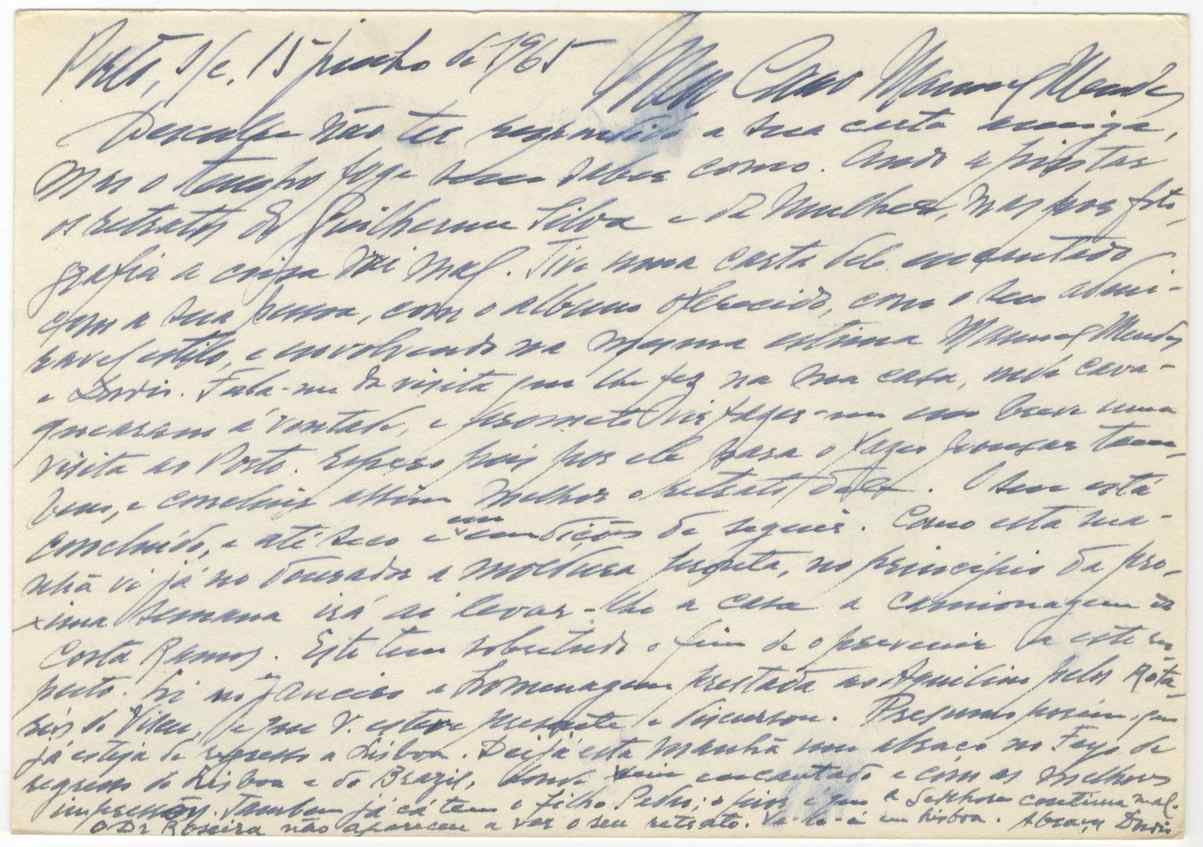 Porto, s/c, 15 junho de 1965 Meu Caro Manuel Mendes
Desculpe não ter respondido a sua carta amiga,
mas o tempo foge sem saber como. Ando a pintar
os retratos do Guilherme Silva e da Mulher, mas por foto,
grafia a coisa vai mal. Tive uma carta dele encantado
com a sua pessoa, com o album oferecido, com o seu admi-
ravel estilo, e envolvendo na mesma estima Manuel Mendes
e Dordio. Fala-me da visita que lhe fez na sua casa, onde cava-
quearam á vontade, e promete vir fazer-me em breve uma
visita ao Porto. Espero pois por ele para o fazer pousar tam-
bem, e concluir assim melhor o retrato. O seu está
concluido, e até seco e em condições de seguir. Como esta ma-
nhã vi já no dourador a moldura pronta, no principio da pro-
xima semana irá ai levar-lhe a casa a camionagem do
Costa Ramos. Este tem sobretudo o fim de o prevenir a este res
peito. Li no Janeiro a homenagem prestada ao Aquilino pelos Rotá-
rios de Viseu, e que V. esteve presente e discursou. Presumo porém que
já esteja de regresso a Lisboa. Dei já esta manhã um abraço no Feyo de
regresso de Lisboa e do Brazil, donde veio encantado e com as melhores
impressões. Tambem já cá tem o filho Pedro; o peor é que a Senhora continua mal.
O Dr Roseira não apareceu a ver o seu retrato. Vê-lo-á em Lisboa. Abraça Dordio